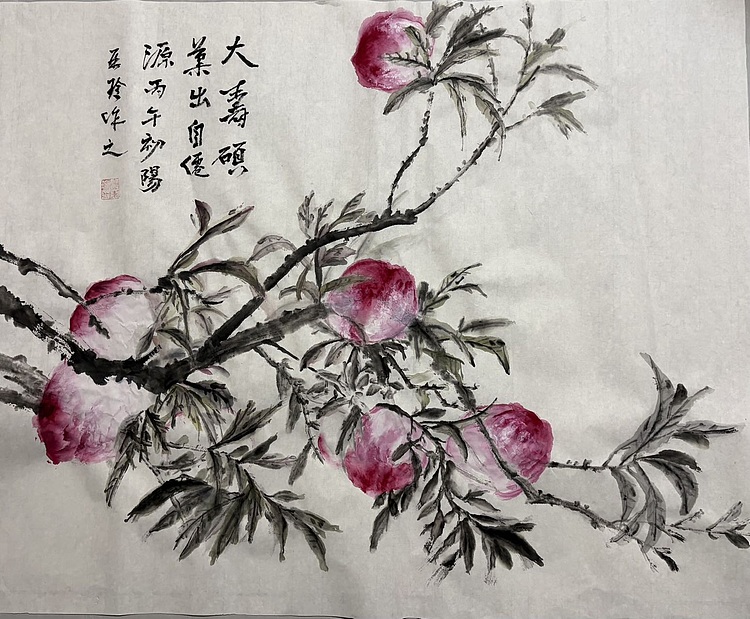 大壽碩
菓出自僊
源丙午初陽
岳玲作之